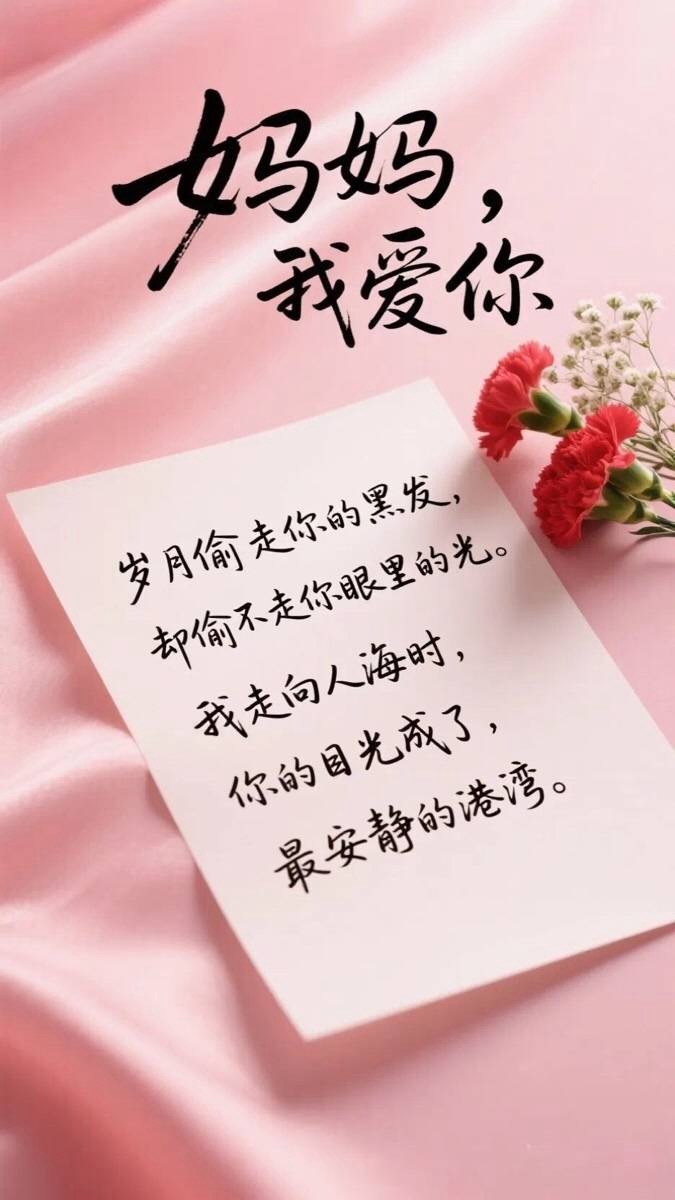 妈妈，
我爱你
岁月偷走你的黑发，
却偷不走你眼里的光。
我走向人海时，
你的目光成了，
最安静的港湾。